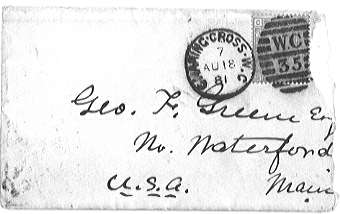 CHARING·CROSS·W.C
7
AU 18
81
W.C
35
Geo. F. Greene Esq
No. Waterford
U.S.A. Main